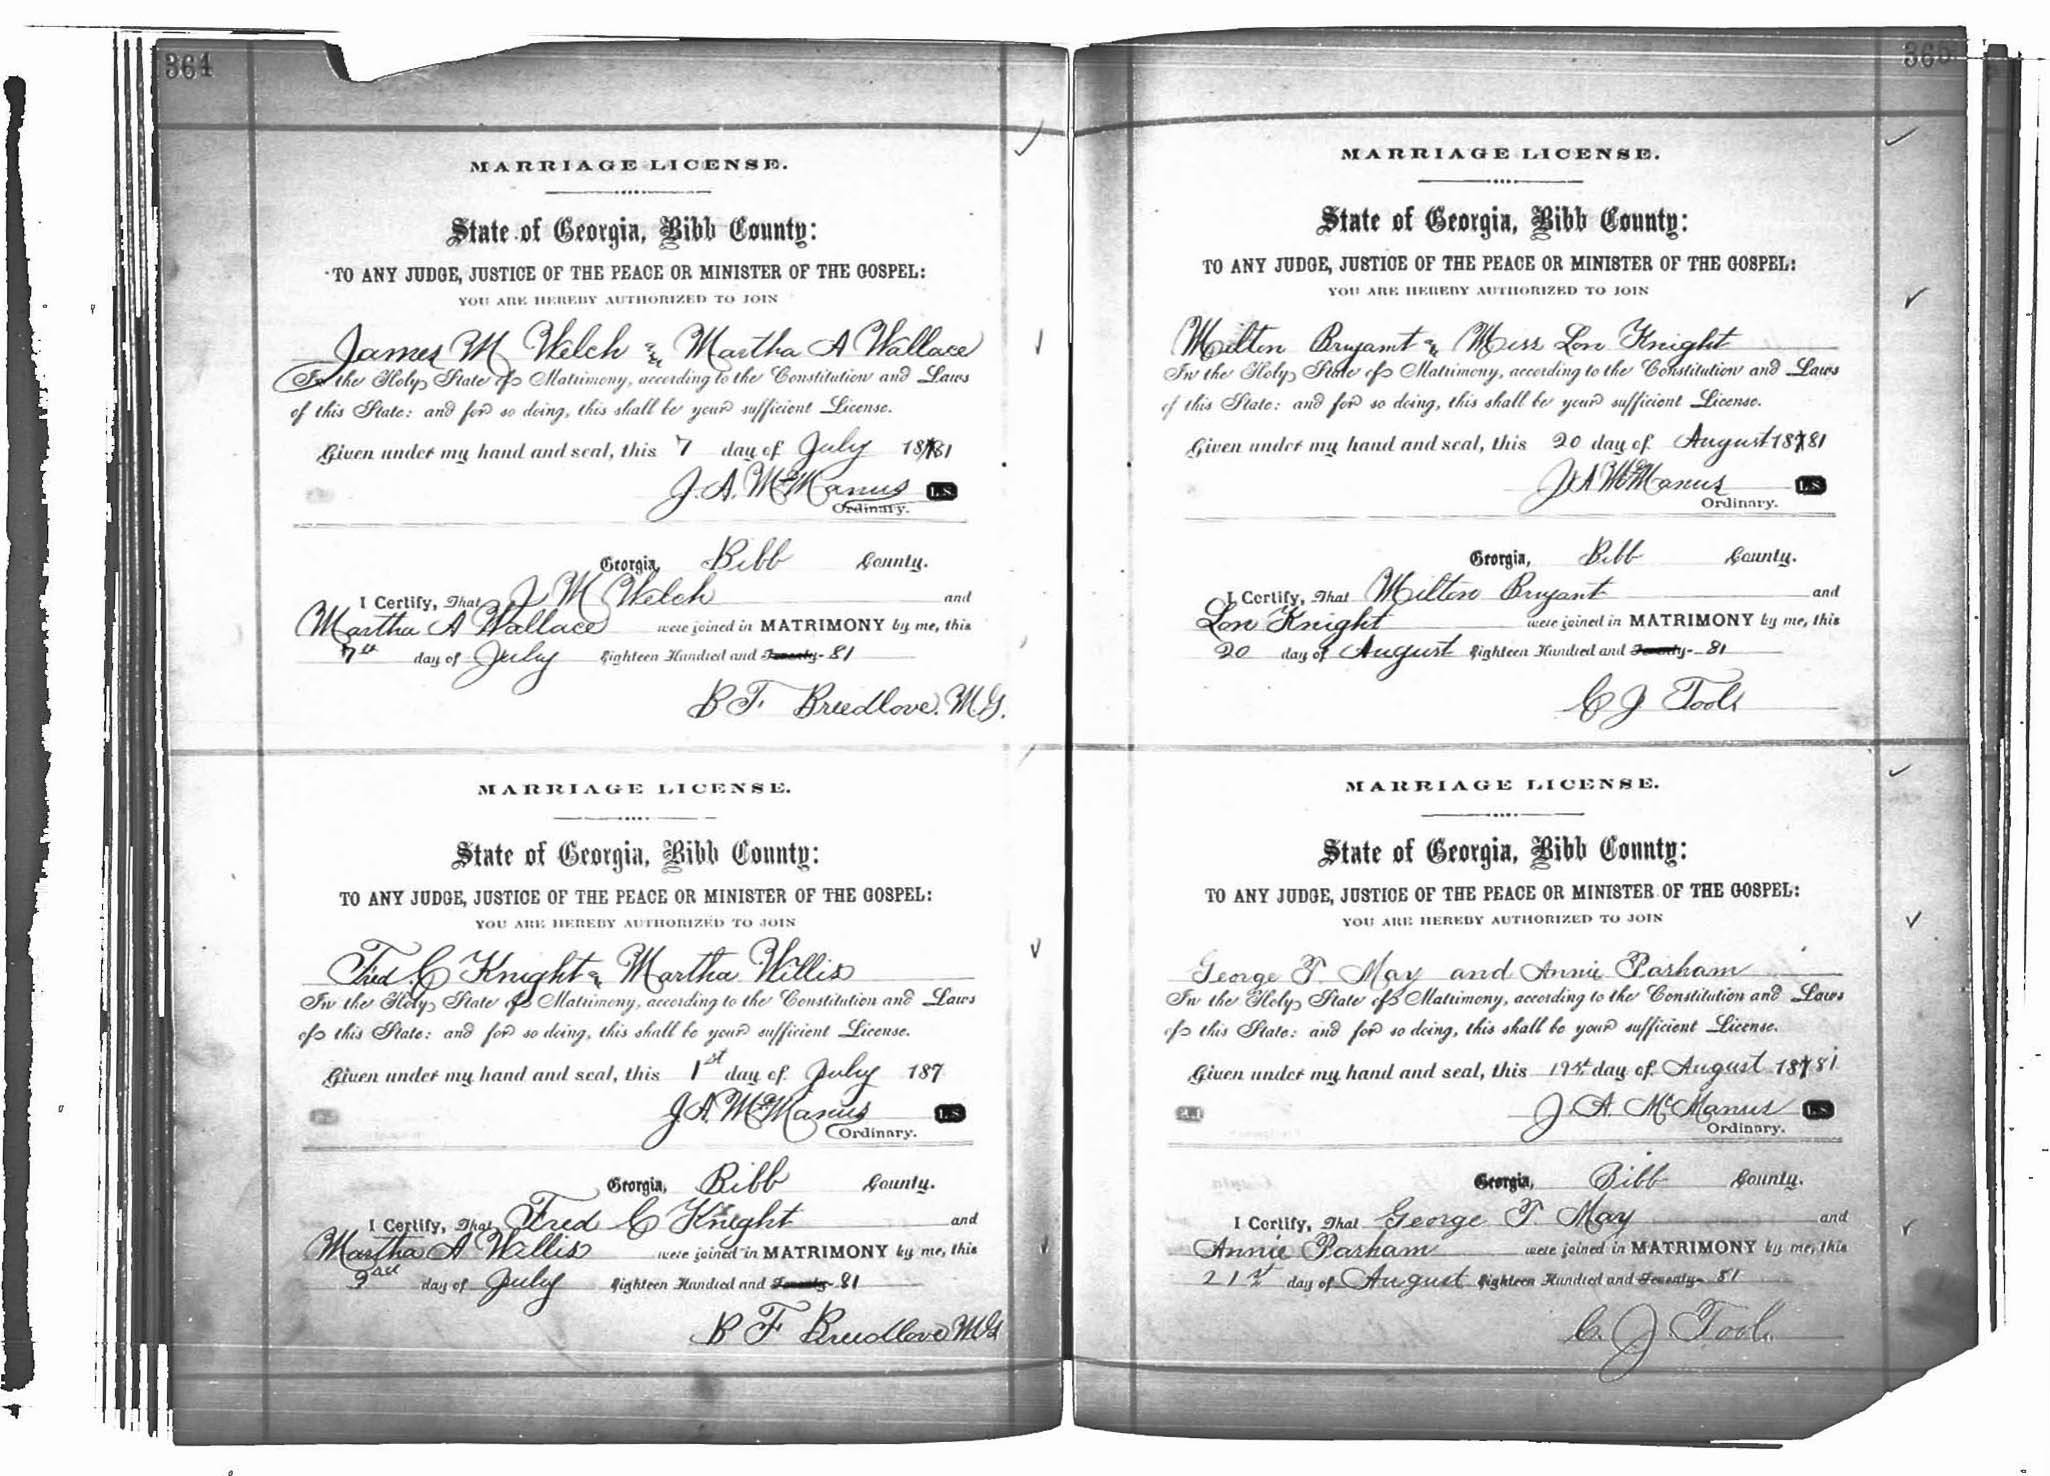 364
MARRIAGE LICENSE.
State of Georgia, Bibb County:
TO ANY JUDGE, JUSTICE OF THE PEACE OR MINISTER OF THE GOSPEL:
YOU ARE HEREBY AUTHORIZED TO JOIN
James M Welch & Martha A Wallace
In the Holy State of Matrimony, according to the Constitution and Laws
of this State: and for so doing, this shall be your sufficient License.
Given under my hand and seal, this 7 day of July 18781
J. A. McManus L.S.
Ordinary.
Georgia, Bibb County.
I Certify, That J M Welch and
Martha A Wallace were joined in MATRIMONY by me, this
7th day of July Eighteen Hundred and Seventy- 81
B F Breedlove. M G.
MARRIAGE LICENSE.
State of Georgia, Bibb County:
TO ANY JUDGE, JUSTICE OF THE PEACE OR MINISTER OF THE GOSPEL:
YOU ARE HEREBY AUTHORIZED TO JOIN
Fred. C Knight & Martha Willis
In the Holy State of Matrimony, according to the Constitution and Laws
of this State: and for so doing, this shall be your sufficient License.
Given under my hand and seal, this 1st day of July 187
J. A. McManus L.S.
Ordinary.
Georgia, Bibb County.
I Certify, That Fred C Knight and
Martha A Willis were joined in MATRIMONY by me, this
day of July Eighteen Hundred and Seventy- 81
B F Breedlove M G
365
MARRIAGE LICENSE.
State of Georgia, Bibb County:
TO ANY JUDGE, JUSTICE OF THE PEACE OR MINISTER OF THE GOSPEL:
YOU ARE HEREBY AUTHORIZED TO JOIN
Milton Bryant & Miss Lon Knight
In the Holy State of Matrimony, according to the Constitution and Laws
of this State: and for so doing, this shall be your sufficient License.
Given under my hand and seal, this 20 day of August 18781
J A McManus L.S.
Ordinary.
Georgia, Bibb County.
I Certify, That Milton Bryant and
Lon Knight were joined in MATRIMONY by me, this
20 day of August Eighteen Hundred and Seventy- 81
C J Toole
MARRIAGE LICENSE.
State of Georgia, Bibb County:
TO ANY JUDGE, JUSTICE OF THE PEACE OR MINISTER OF THE GOSPEL:
YOU ARE HEREBY AUTHORIZED TO JOIN
George T. May and Annie Parham
In the Holy State of Matrimony, according to the Constitution and Laws
of this State: and for so doing, this shall be your sufficient License.
Given under my hand and seal, this day of August 18781
J. A. McManus L.S.
Ordinary.
Georgia, Bibb County.
I Certify, That George T. May and
Annie Parham were joined in MATRIMONY by me, this
21st day of August Eighteen Hundred and Seventy- 81
C. J Toole